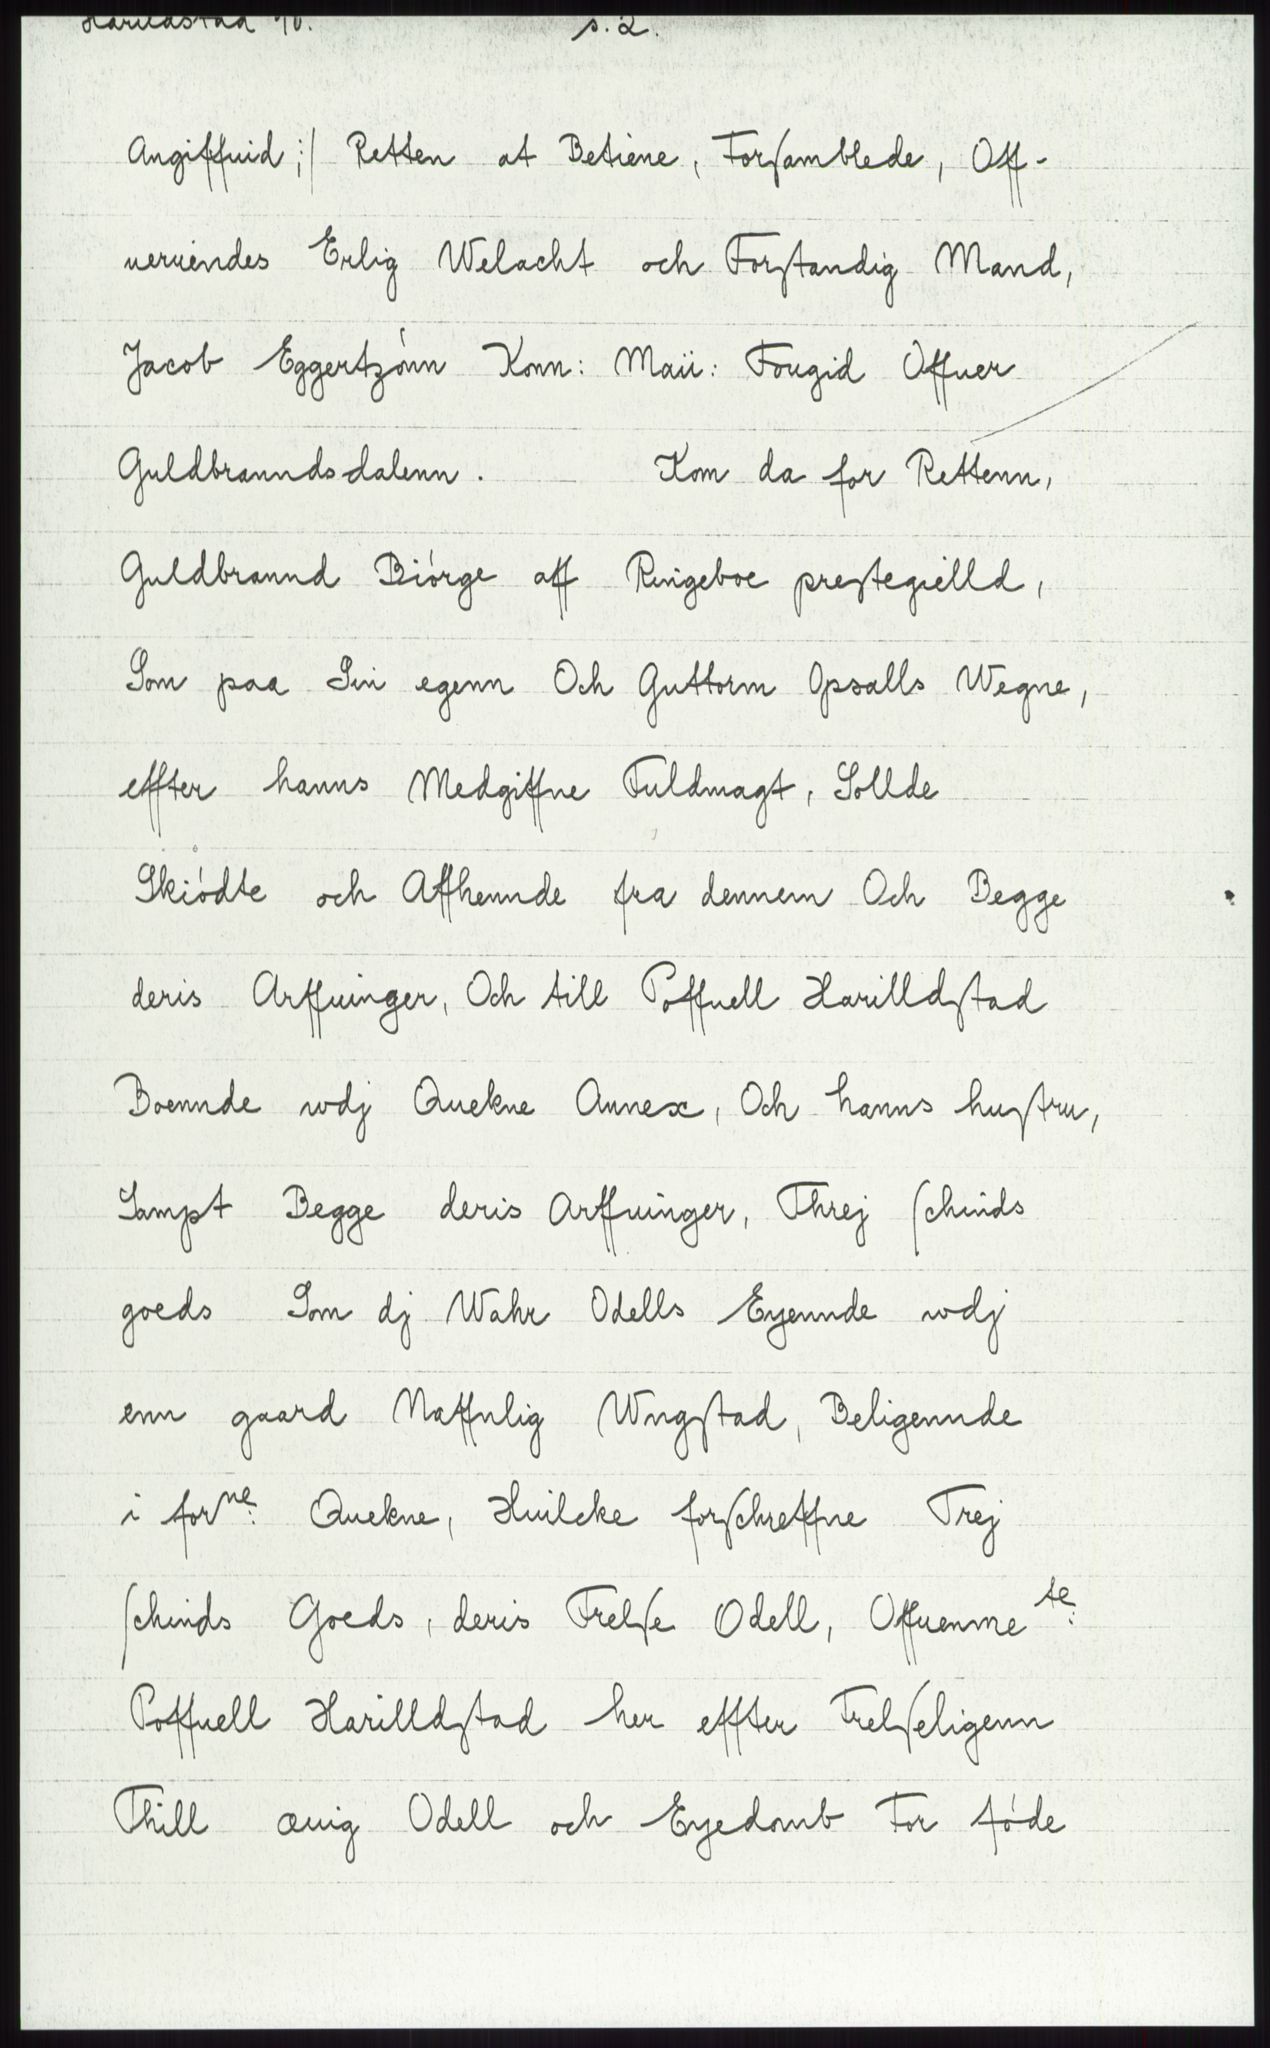 Harildstad 10. s. 2.
Angiffuid ;/ Retten at Betiene, Forsamblede, Off-
ueruendes Erlig Welacht och Forstandig Mand,
Jacob Eggertzónn Konn: Maii: Fougid Offuer
Guldbranndsdalenn. Kom da for Rettenn,
Guldbrannd Biórge aff Ringeboe prestegielld,
Som paa Sin egenn Och Guttorm Opsalls Wegne,
effter hanns Medgiffne Fuldmagt, Sollde
Skiódte och Affhennde fra dennem Och Begge
deris Arffuinger, Och till Poffuell Harilldstad
Boennde wdj Quekne Annex, Och hanns hustru,
Sampt Begge deris Arffuinger, Threj schinds
goeds Som dj Wahr Odells Eyennde wdj
enn gaard Naffnlig Wngstad, Beligennde
i forne: Quekne, Huilcke forschreffne Trej
schinds Goeds, deris Frelse Odell, Offuenmete:
Poffuell Harilldstad her effter Frelseligenn
Thill æuig Odell och Eyedomb Forføde